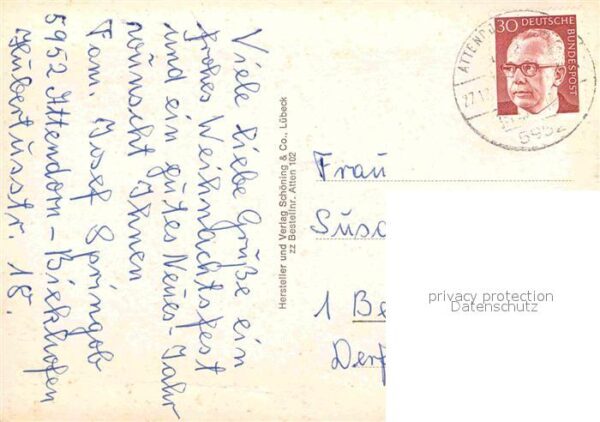 Viele liebe Grüße ein
frohes Weihnachtsfest
und ein gutes Neues-Jahr
wünscht Ihnen
Fam. Josef Springob
5952 Attendorn-Biekhofen
Hubertusstr. 18.
Hersteller und Verlag Schöning & Co., Lübeck
zz Bestellnr. Atten 102
30 DEUTSCHE
BUNDESPOST
5952
Frau
1 Be
privacy protection
Datenschutz